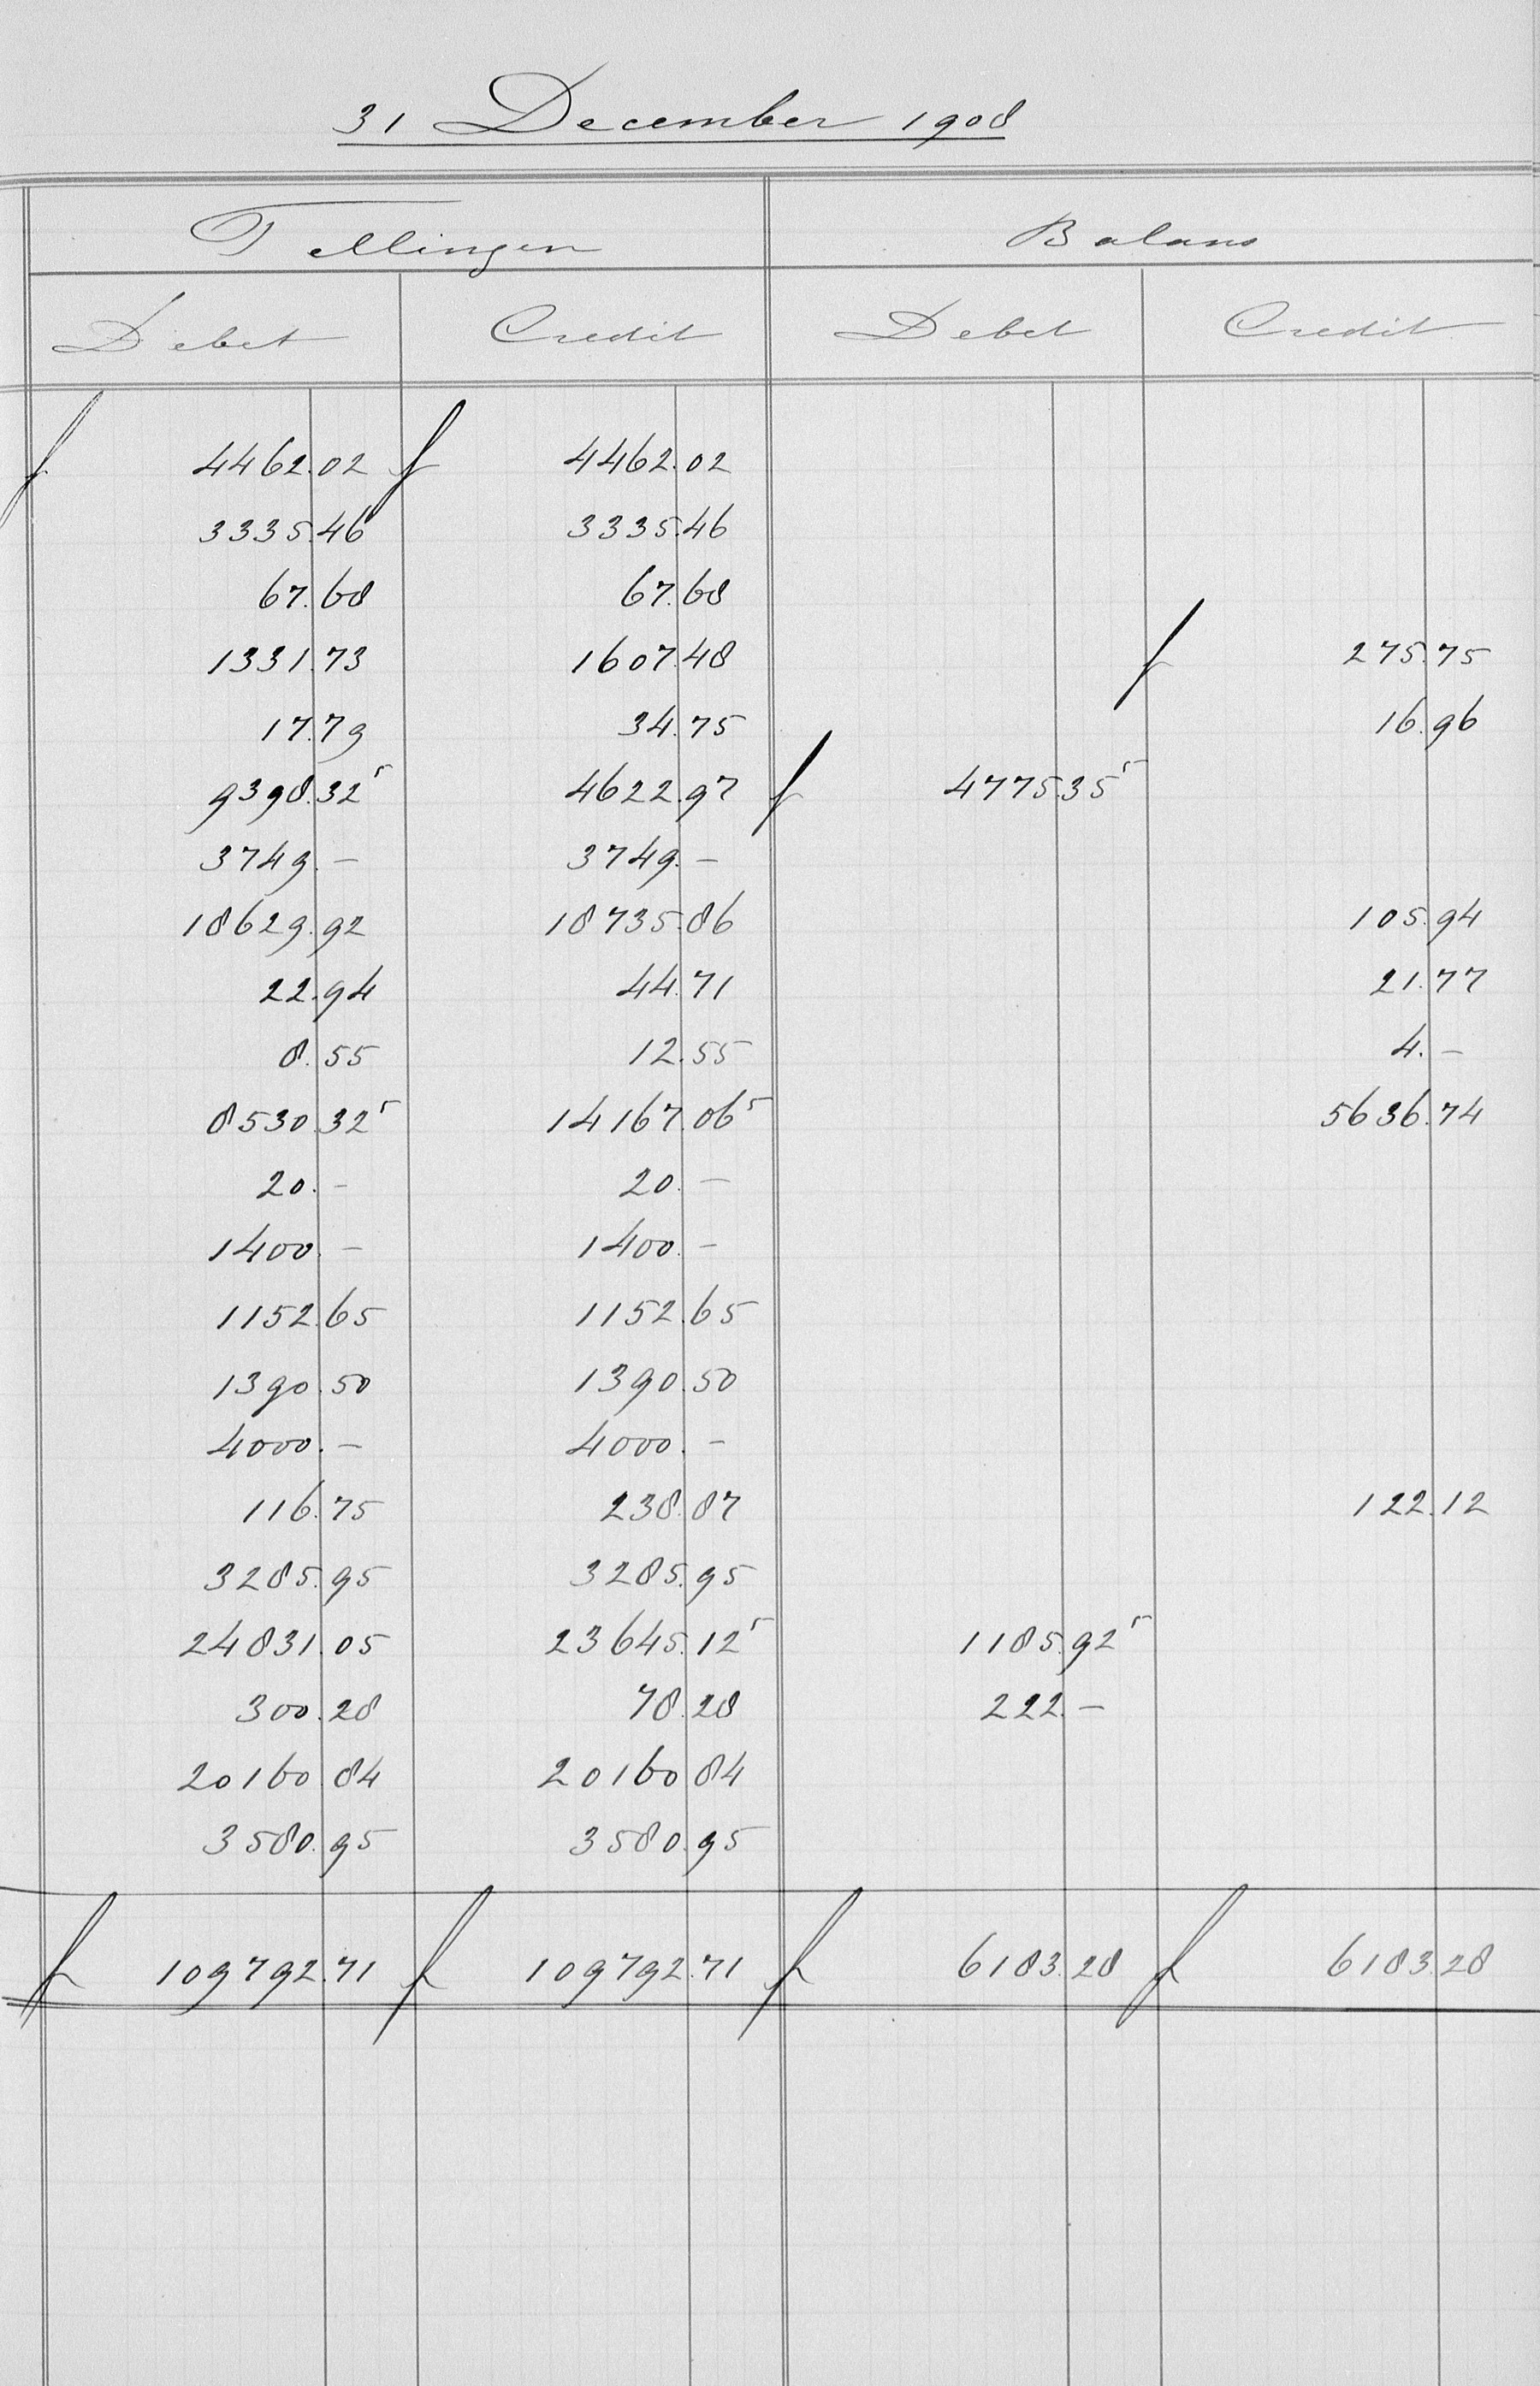 31 December 1908
Tellingen Balans
Debet Credit Debet Credit
f 4462.02 f 4462.02
3335.46 3335.46
67.68 67.68
1331.73 1607.48 f 275.75
17.79 34.75 16.96
9398.32⁵ 4622.97 f 4775.35⁵
3749.– 3749.–
18629.92 18735.86 105.94
22.94 44.71 21.77
8.55 12.55 4.–
8530.32⁵ 14167.06⁵ 5636.74
20.– 20.–
1400.– 1400.–
1152.65 1152.65
1390.50 1390.50
4000.– 4000.–
116.75 238.87 122.12
3285.95 3285.95
24831.05 23645.12⁵ 1185.92⁵
300.28 78.28 222.–
20160 84 20160 84
3580.95 3580.95
f 109792.71 f 109792.71 f 6183.28 f 6183.28